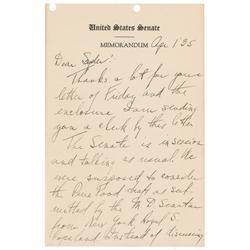 United States Senate
MEMORANDUM Apr 1 '35
Dear Snyder:
Thanks a lot for your
letter of Friday and the
enclosure. I am sending
you a check by this letter
The Senate is in session
and talking as usual. We
were supposed to consider
the Pure Food draft as sub-
mitted by the M.D. Senator
from New York, Royal S.
Copeland. Instead of discussing